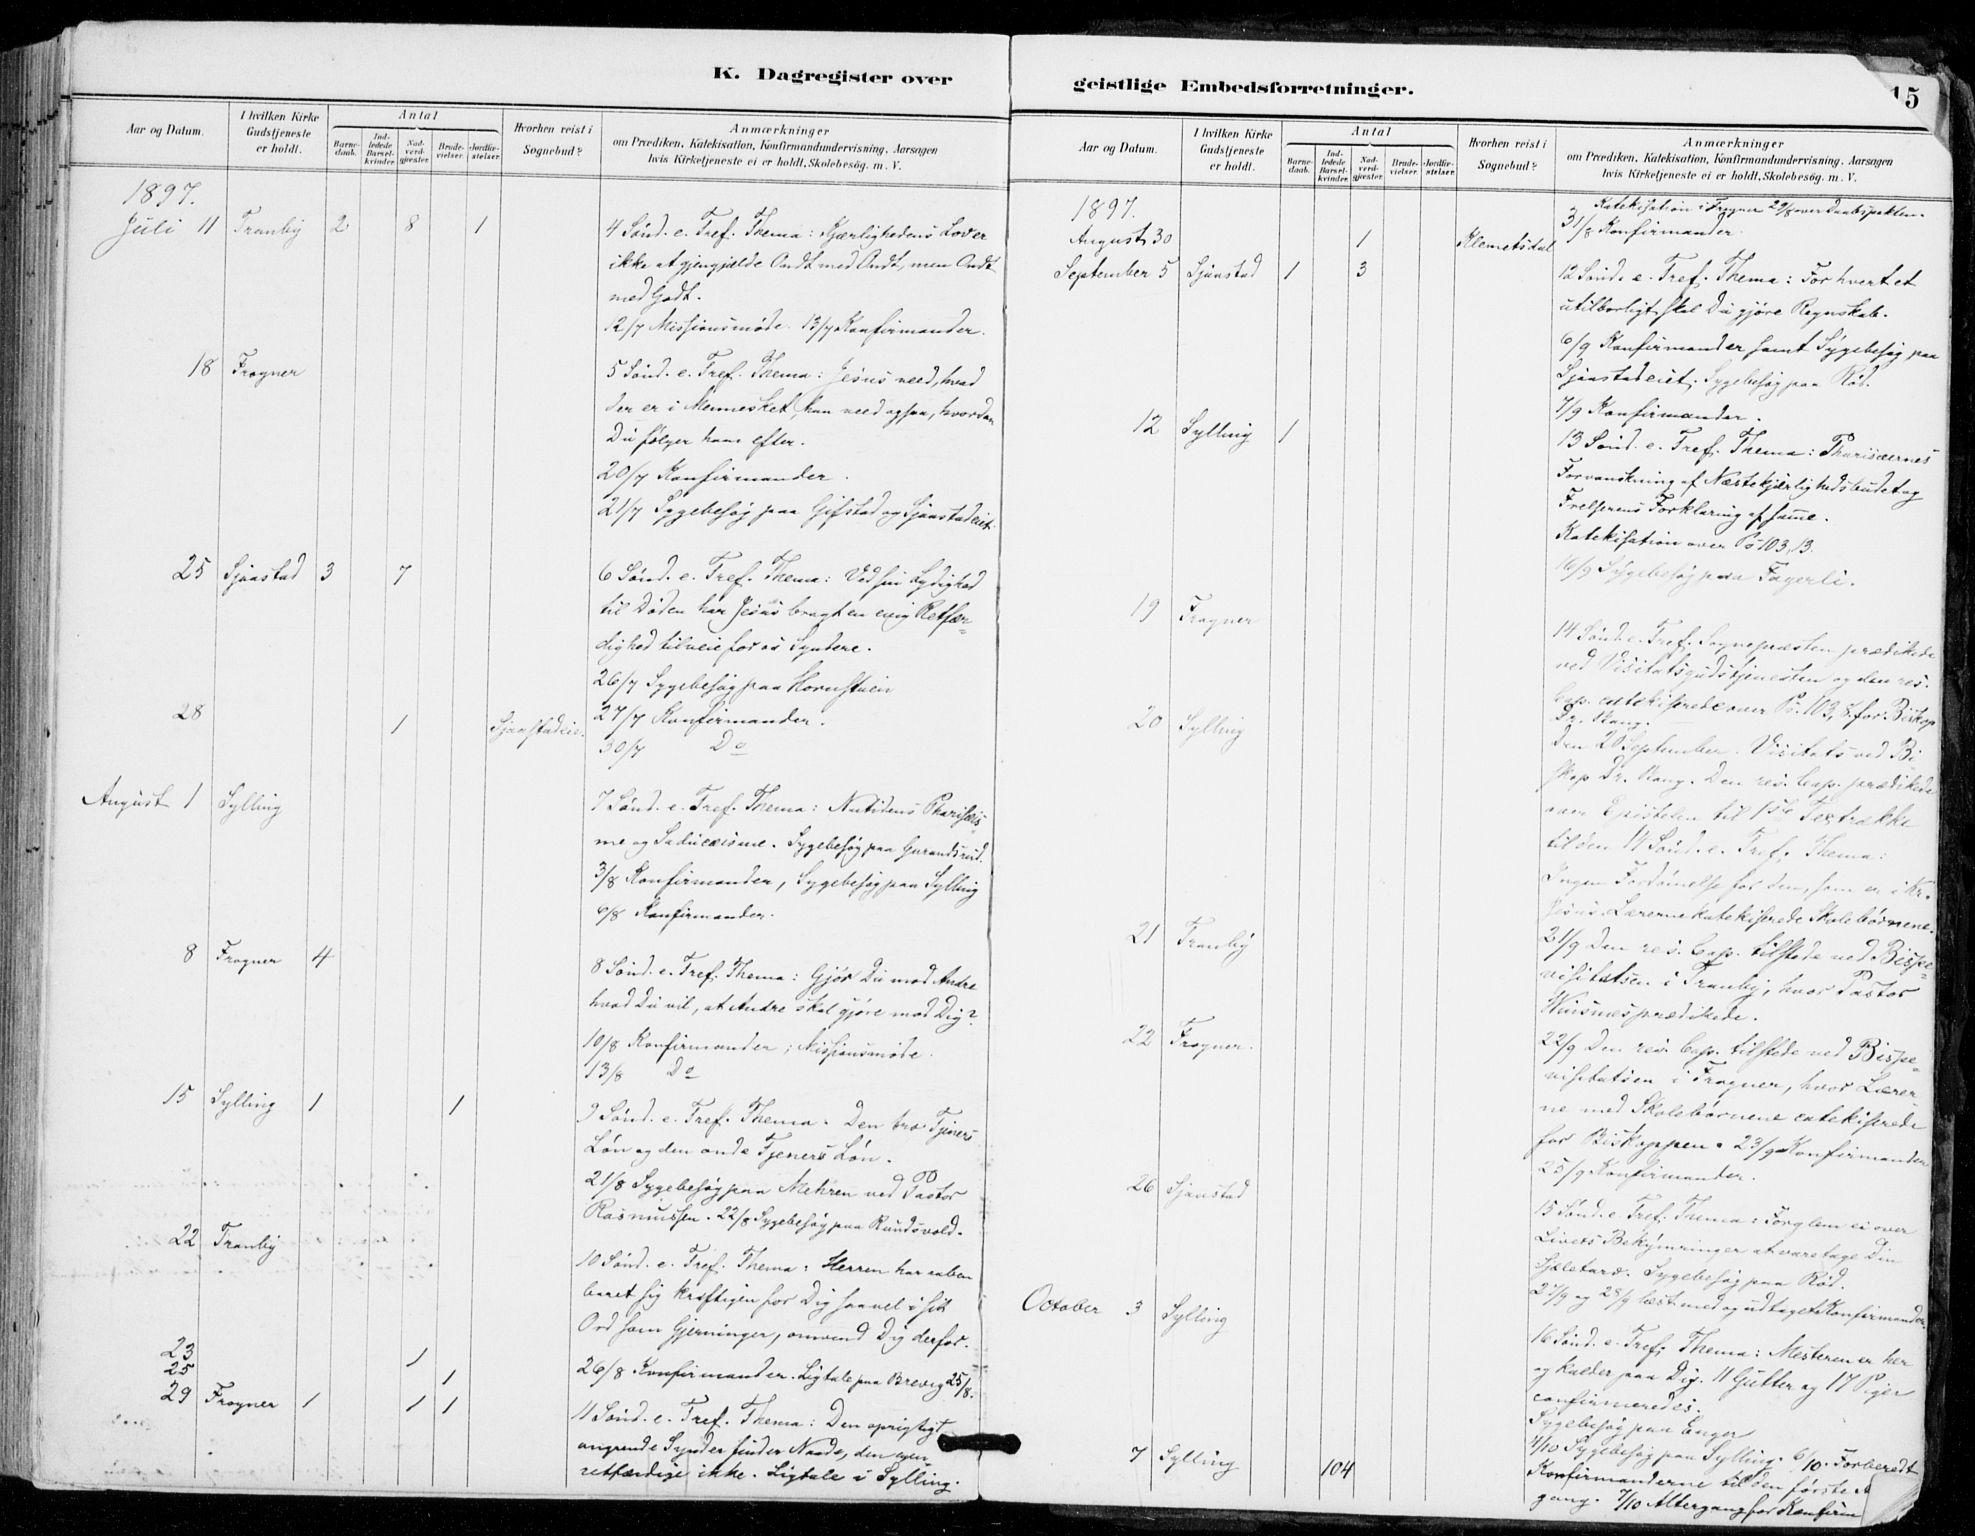 K. Dagregister over
Aar og Datum.
I hvilken Kirke Gudstjeneste er holdt.
Antal
Barnedaab.
Indledede Barselkvinder.
Nadverdgjester.
Brudevielser.
Jordfæstelser.
Hvorhen reist i Sognebud?
Anmærkninger
om Prædiken, Katekisation, Konfirmandundervisning, Aarsagen
hvis Kirketjeneste ei er holdt, Skolebesög. m. V.
1897.
Juli 11 Tranby 2 8 1 4 Sönd. e. Tref. Thema: Kjærlighedens Lov er
ikke at gjengjælde Ondt med Ondt, men Ondt
med Godt.
12/7 Missionsmøde. 13/7 Konfirmander.
18 Frogner 5 Sönd. e. Tref. Thema: Jesus veed, hvad
der er i Mennesket, han veed ogsaa, hvordan
Du følger ham efter.
20/7 Konfirmander.
21/7 Sygebesög paa Gifstad og Sjaastadeiet.
25 Sjaastad 3 7 6 Sönd. e. Tref. Thema: Ved sin Lydighed
til Døden har Jesus bragt en evig Retfær-
dighed tilveie for os Syndere.
26/7 Sygebesög paa Hornstuen
28 1 Sjaastadeie. 27/7 Konfirmander.
30/7 Do
August 1 Sylling 7 Sönd. e. Tref. Thema: Nutidens Pharisæis-
me og Saducæisme. Sygebesög paa Gurandsrud.
3/8 Konfirmander, Sygebesög paa Sylling
6/8 Konfirmander.
8 Frogner 4 8 Sönd. e. Tref. Thema: Gjör Du mod Andre
hvad Du vil, at Andre skal gjöre mod Dig?
10/8 Konfirmander; Missionsmøde.
13/8 Do
15 Sylling 1 1 9 Sönd. e. Tref. Thema. Den tro Tjeners
Løn og den onde Tjeners Løn.
21/8 Sygebesög paa Mehren ved Pastor
Rasmussen. 22/8 Sygebesög paa Rundsvold.
22 Tranby 10 Sönd. e. Tref. Thema: Herren har aaben
baret sig kraftigen for Dig saavel i sit
Ord som Gjerninger, omvend Dig derfor.
23 1
25 1 26/8 Konfirmander. Ligtale paa Brevig 25/8.
29 Frogner 1 1 1 11 Sönd. e. Tref. Thema: Den oprigtigt
angrende Synder finder Naade, den egen-
retfærdige ikke. Ligtale i Sylling.
geistlige Embedsforretninger.
15
Aar og Datum.
I hvilken Kirke Gudstjeneste er holdt.
Antal
Barnedaab.
Indledede Barselkvinder.
Nadverdgjester.
Brudevielser.
Jordfæstelser.
Hvorhen reist i Sognebud?
Anmærkninger
om Prædiken, Katekisation, Konfirmandundervisning, Aarsagen
hvis Kirketjeneste ei er holdt, Skolebesög. m. V.
1897.
Katekisation i Frogner 29/8 over Daabspakten.
August 30 1 Klemetsdal 31/8 Konfirmander.
September 5 Sjaastad 1 3 12 Sönd. e. Tref. Thema: For hvert et
utilbörligt skal Du gjöre Regnskab.
6/9 Konfirmander samt Sygebesög paa
Sjaastadeiet, Sygebesög paa Röd.
7/9 Konfirmander.
12 Sylling 1 13 Sönd. e. Tref. Thema: Pharisæernes
Forvanskning af Næstekjærlighedsbudet og
Frelserens Forklaring af samme.
Katekisation over Ps 103, 13.
16/9 Sygebesög paa Fagerli.
19 Frogner 14 Sönd. e. Tref. Sognepræsten prædikede
ved Visitatsgudstjenesten og den res.
Cap. catekiserede over Ps. 103, 8. for Biskop
Dr. Bang.
20 Sylling Den 20 September. Visitats ved Bi
skop Dr. Bang. Den res. Cap. prædikede
over Epistelen til 1ste Textrække
til den 14 Sönd. e. Tref. Thema:
Ingen Fordömelse for dem, som er i Kr.
Jesus. Lærerne katekiserede Skolebörnene.
21 Tranby 21/9 Den res. Cap. tilstede ved Bispe-
visitatsen i Tranby, hvor Pastor
Wiisnæs prædikede.
22 Frogner. 22/9 Den res. Cap. tilstede ved Bispe-
visitatsen i Frogner, hvor Lærer-
ne med Skolebörnene catekiserede
for Biskoppen. 23/9 Konfirmander
25/9 Konfirmander.
26 Sjaastad 15 Sönd. e. Tref. Thema: Forglem ei over
Livets Bekymringer at varetage Din
Sjæletarv. Sygebesög paa Röd.
27/9 og 28/9 læst med og udtaget Konfirmander.
October 3 Sylling 16 Sönd. e. Tref. Thema: Mesteren er her
og kalder paa Dig. 11 Gutter og 17 Piger
confirmeredes.
Sygebesög paa Enger
4/10 Sygebesög paa Sylling. 6/10. Forberedt
7 Sylling 104 Konfirmanderne til den förste A
gang. 7/10 Altergang for Konfirm